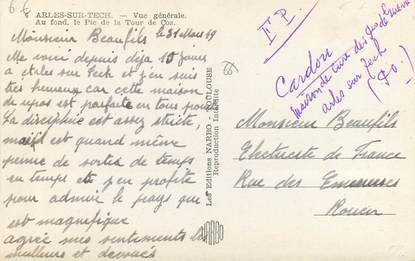 6 ARLES-SUR-TECH. — Vue générale.
Au fond, le Pic de la Tour de Cos.
Monsieur Beaufils le 31 Mars 49
Me voici depuis déjà 10 jours
a Arles sur Tech et j'en suis
tres heureux car cette maison
de repos est parfaite en tous points
La discipline est assez stricte
mais est quand même
permis de sortir de temps
en temps et j'en profite
pour admirer le pays que
est magnifique
agréé mes sentiments les
meilleurs et devoués
Les Editions NARBO - TOULOUSE
Reproduction Interdite
NARBO
F P.
Cardou
Maison de cure des de guerre
Arles sur Tech
(P.O.)
Monsieur Beaufils
Electricité de France
Rue des
Rouen